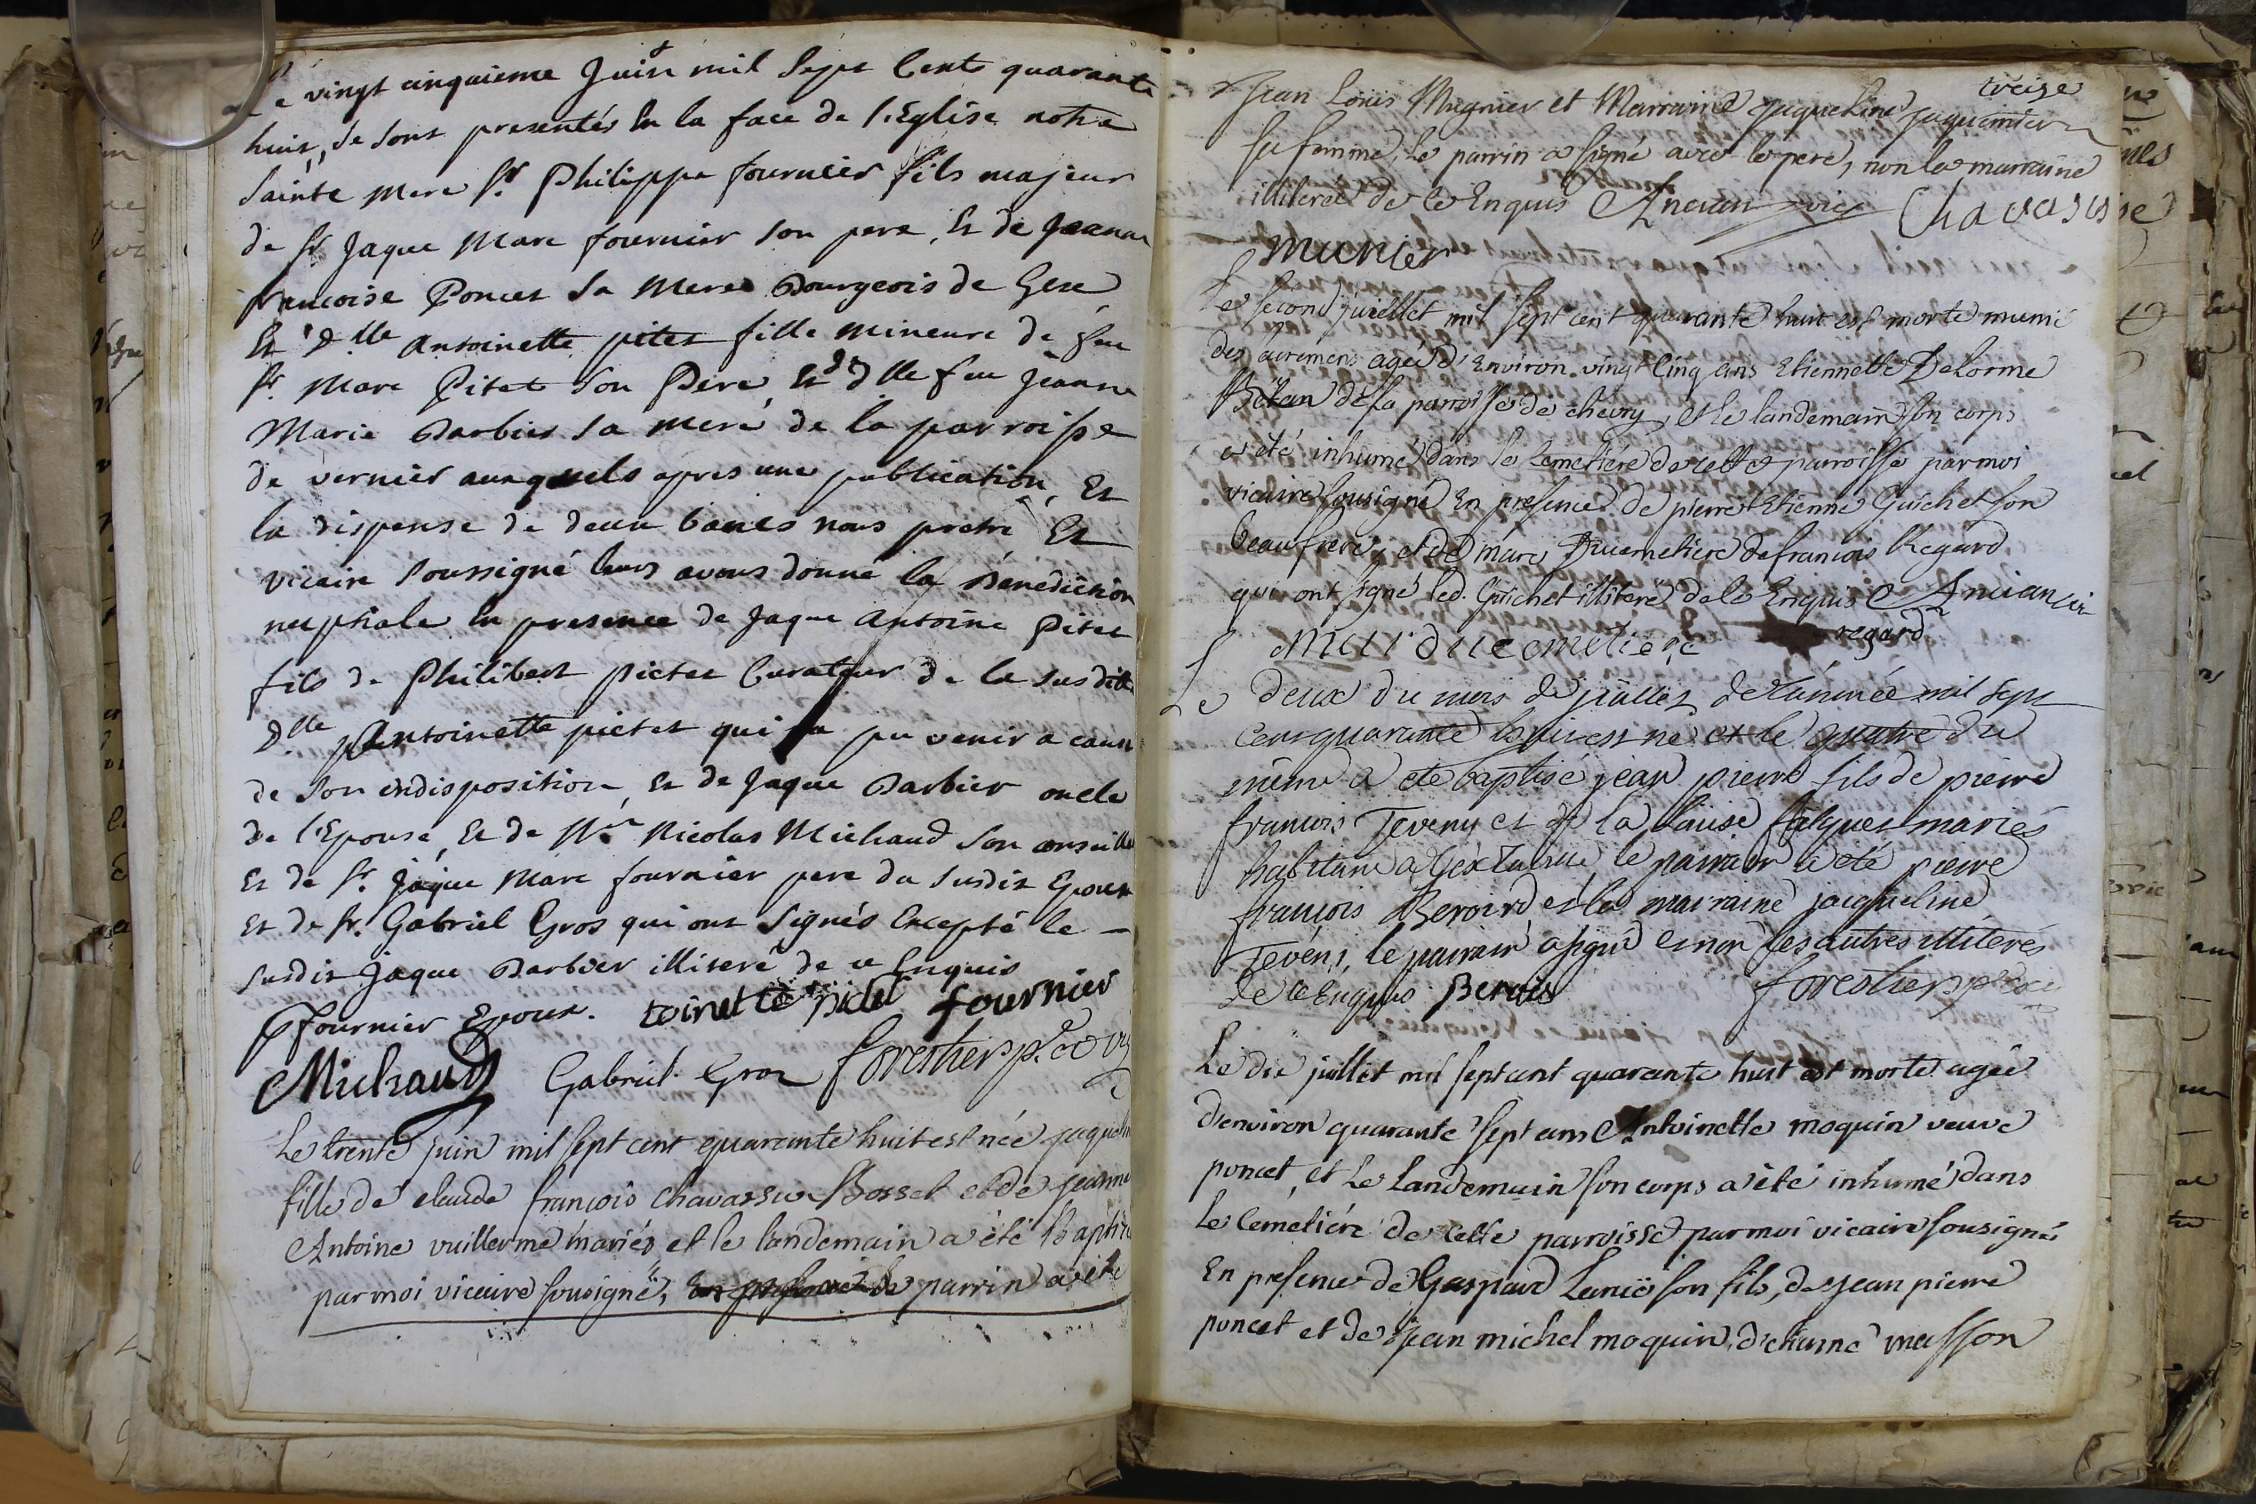 Le vingt cinquieme Juin mil Sept Cents quarante
huit, se sont presentés En la face de l'Eglise notre
Sainte mere Sr. Philippe fournier fils majeur
de Sr. Jaque Marc fournier son pere, Et de Jeanne
francoise Poncet sa Mere Bourgeois de Gex
Et dlle Antoinette pitet fille mineure de feu
Sr. Marc Pitet son Pere, Et de dlle feu Jeanne
Marie Barbier sa mere de la parroisse
de vernier auxquels apres une publication, Et
la dispense de deux bancs nous pretre Et
vicaire Soussigné leurs avons donné la Bénédiction
neuptiale En presence de Jaque Antoine Pitet
fils de Philibert pictet Curateur de la susditte
dlle Antoinette pictet qui pu venir a cause
de son indisposition, Et de Jaque Barbier oncle
de l'Epouse, Et de Nicolas Michaud son conseiller
Et de Sr. Jaque Marc fournier pere du susdit Epoux
Et de Sr. Gabriel Gros qui ont signés Excepté le
susdit Jaque Barbier illiteré de ce Enquis
fournier Epoux. toinette pictet fournier
Michaud Gabriel Gros forestier p. et vic
Le trente juin mil sept cent quarante huit est née jaqueline
fille de claude françois chavassu Bosset et de jeanne
Antoine vuillerme mariés, et le landemain a été baptisée
par moi vicaire sousigné, parrin a été
treize
Jean Loüis Mugnier et Marraine Jaqueline
sa femme, Le parrin a signé avec le pere, non la marraine
illiteré de ce Enquis Ancian vic Chavassu
Munier
Le second juillet mil sept cent quarante huit est morte munie
des sacremens agée d'Environ vingt cinq ans Etiennette DeLorme
de la parroisse de chevry, et le landemain son corps
a été inhumé dans le cemetiere de cette parroisse par moi
vicaire sousigné En presence de pierre Etienne Guichet son
beaufrere, et de marc Ducemetiere de francois Regard
qui ont signé led. Guichet illiteré de ce Enquis Ancian vic
ducemetiere regard
Le deux du mois de juillet de l'année mil sept
cent quarante huit est né et le quatre du
même a eté baptisé jean pierre fils de pierre
francois Teveny et de la Louise mariés
habitant a Gex le parrain a été pierre
francois Beroird, et la mairaine jacqueline
Tevény, le parrain a signé et non les autres illiterés
de ce Enquis Berois forestier p. vic
Le dix juillet mil sept cent quarante huit est morte agée
d'environ quarante sept ans Antoinette moquin veuve
poncet, et Le Landemain son corps a été inhumé dans
Le Cemetiére de cette parroisse par moi vicaire sousigné
En presence de Gaspard son fils, de jean pierre
poncet et de jean michel moquin, masson